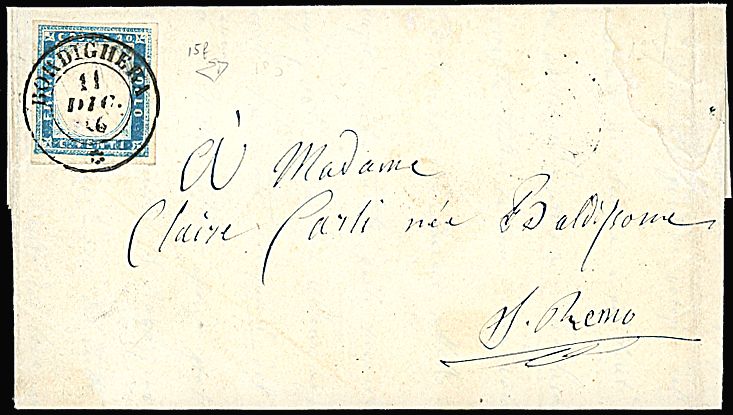 BORDIGHERA
11
DIC.
56
C. VENTI
15f
À Madame
Claire Carli née Baldissone
S. Remo